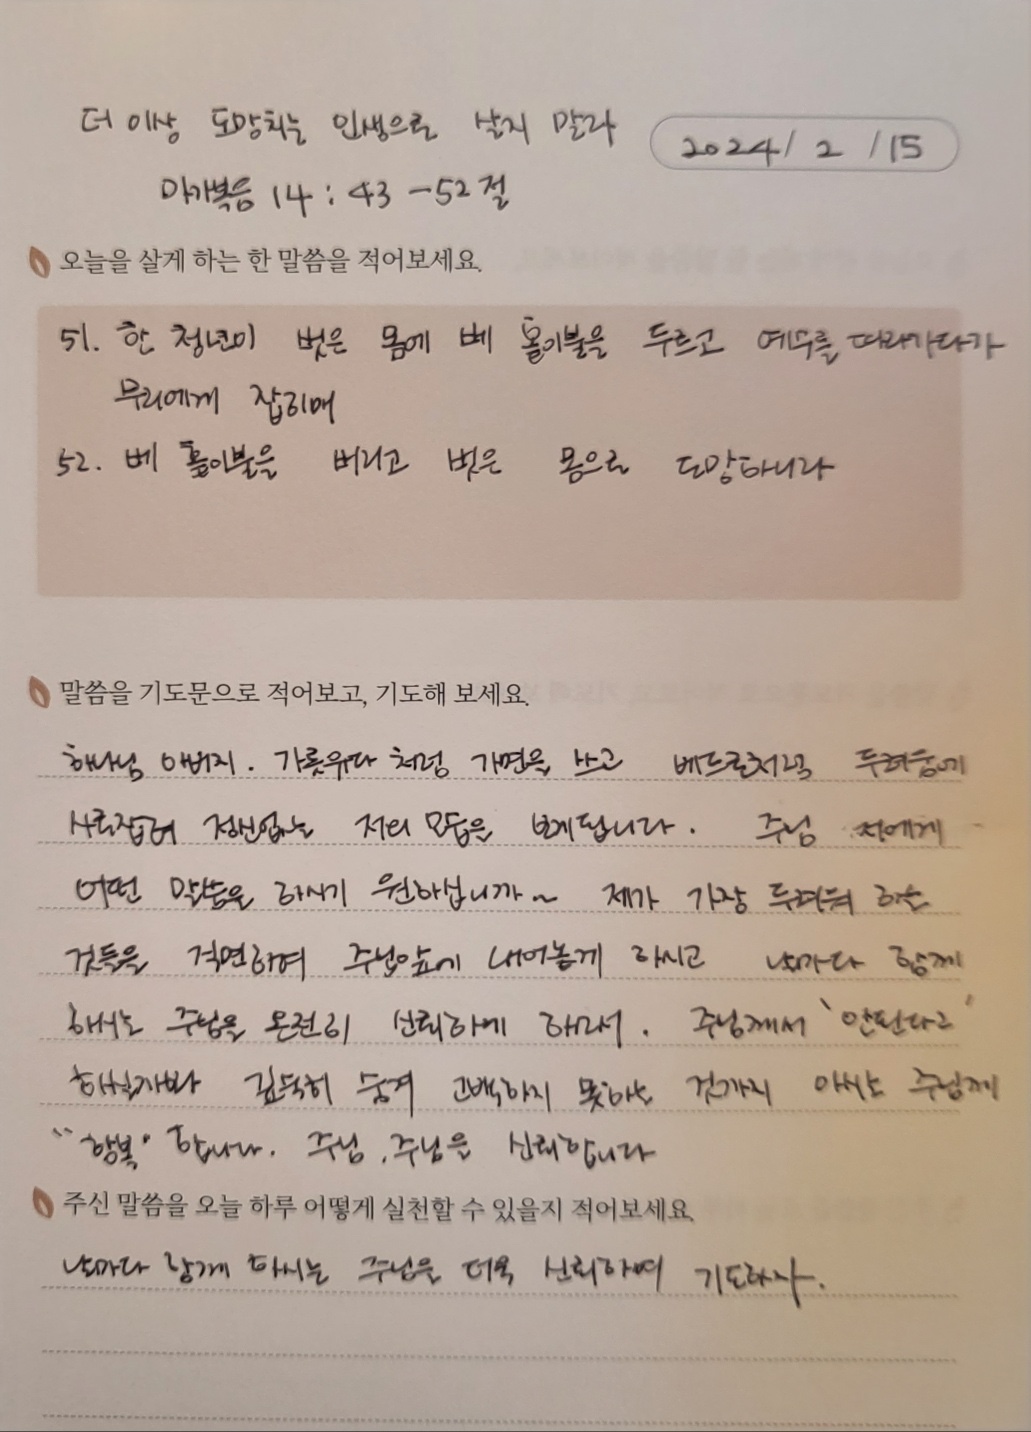 더 이상 도망치는 인생으로 살지 말라
2024/ 2 /15
마가복음 14 : 43 -52절
오늘을 살게 하는 한 말씀을 적어보세요.
51. 한 청년이 벗은 몸에 베 홑이불을 두르고 예수를 따라가다가
무리에게 잡히매
52. 베 홑이불을 버리고 벗은 몸으로 도망하니라
말씀을 기도문으로 적어보고, 기도해 보세요.
하나님 아버지. 가룟유다 처럼 가면을 쓰고 베드로처럼 두려움에
사로잡혀 정신없는 저의 모습을 보게됩니다. 주님 저에게
어떤 말씀을 하시기 원하십니까~ 제가 가장 두려워 하는
것들을 직면하여 주님앞에 내어놓게 하시고 날마다 함께
하시는 주님을 온전히 신뢰하게 하소서. 주님께서 '안된다고'
하실까봐 깊숙히 숨겨 고백하지 못하는 것까지 아시는 주님께
"항복" 합니다. 주님, 주님을 신뢰합니다
주신 말씀을 오늘 하루 어떻게 실천할 수 있을지 적어보세요.
날마다 함께 하시는 주님을 더욱 신뢰하며 기도하자.